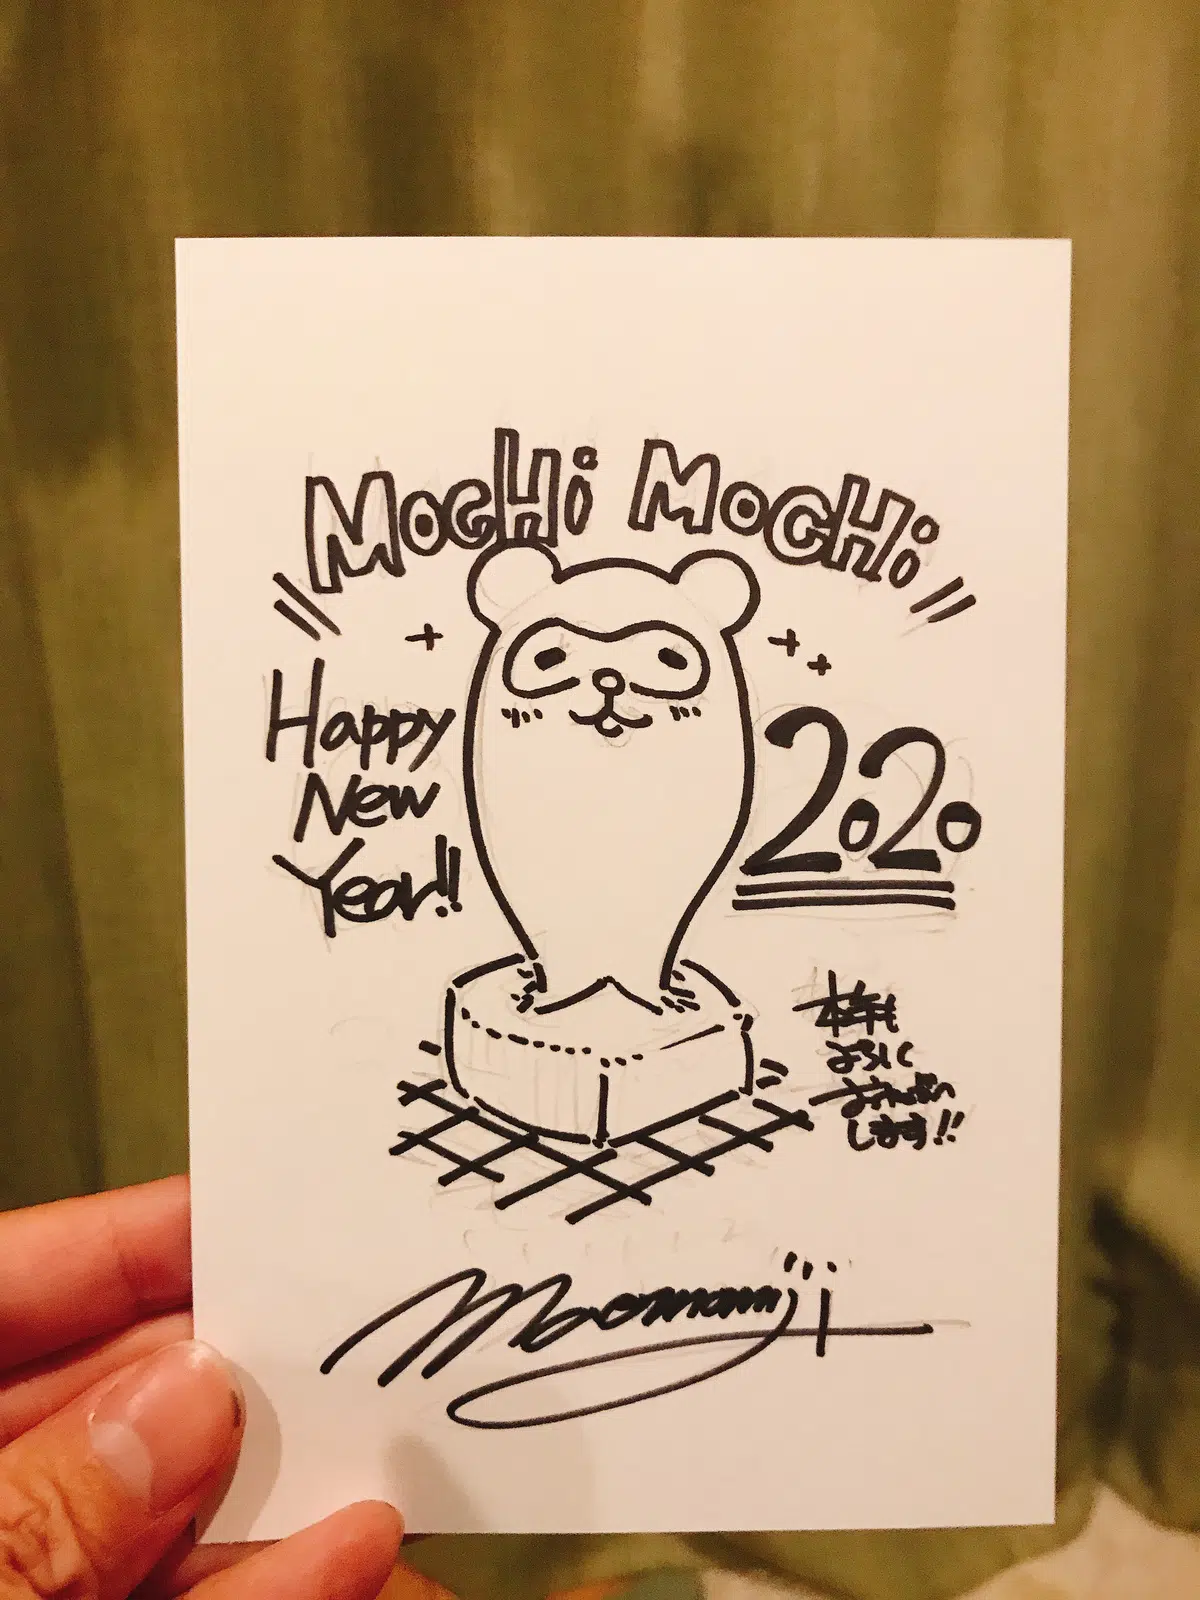 MOCHi MOCHi
Happy
New
Year!!
2020
本年も
よろしく
おねがい
します!!